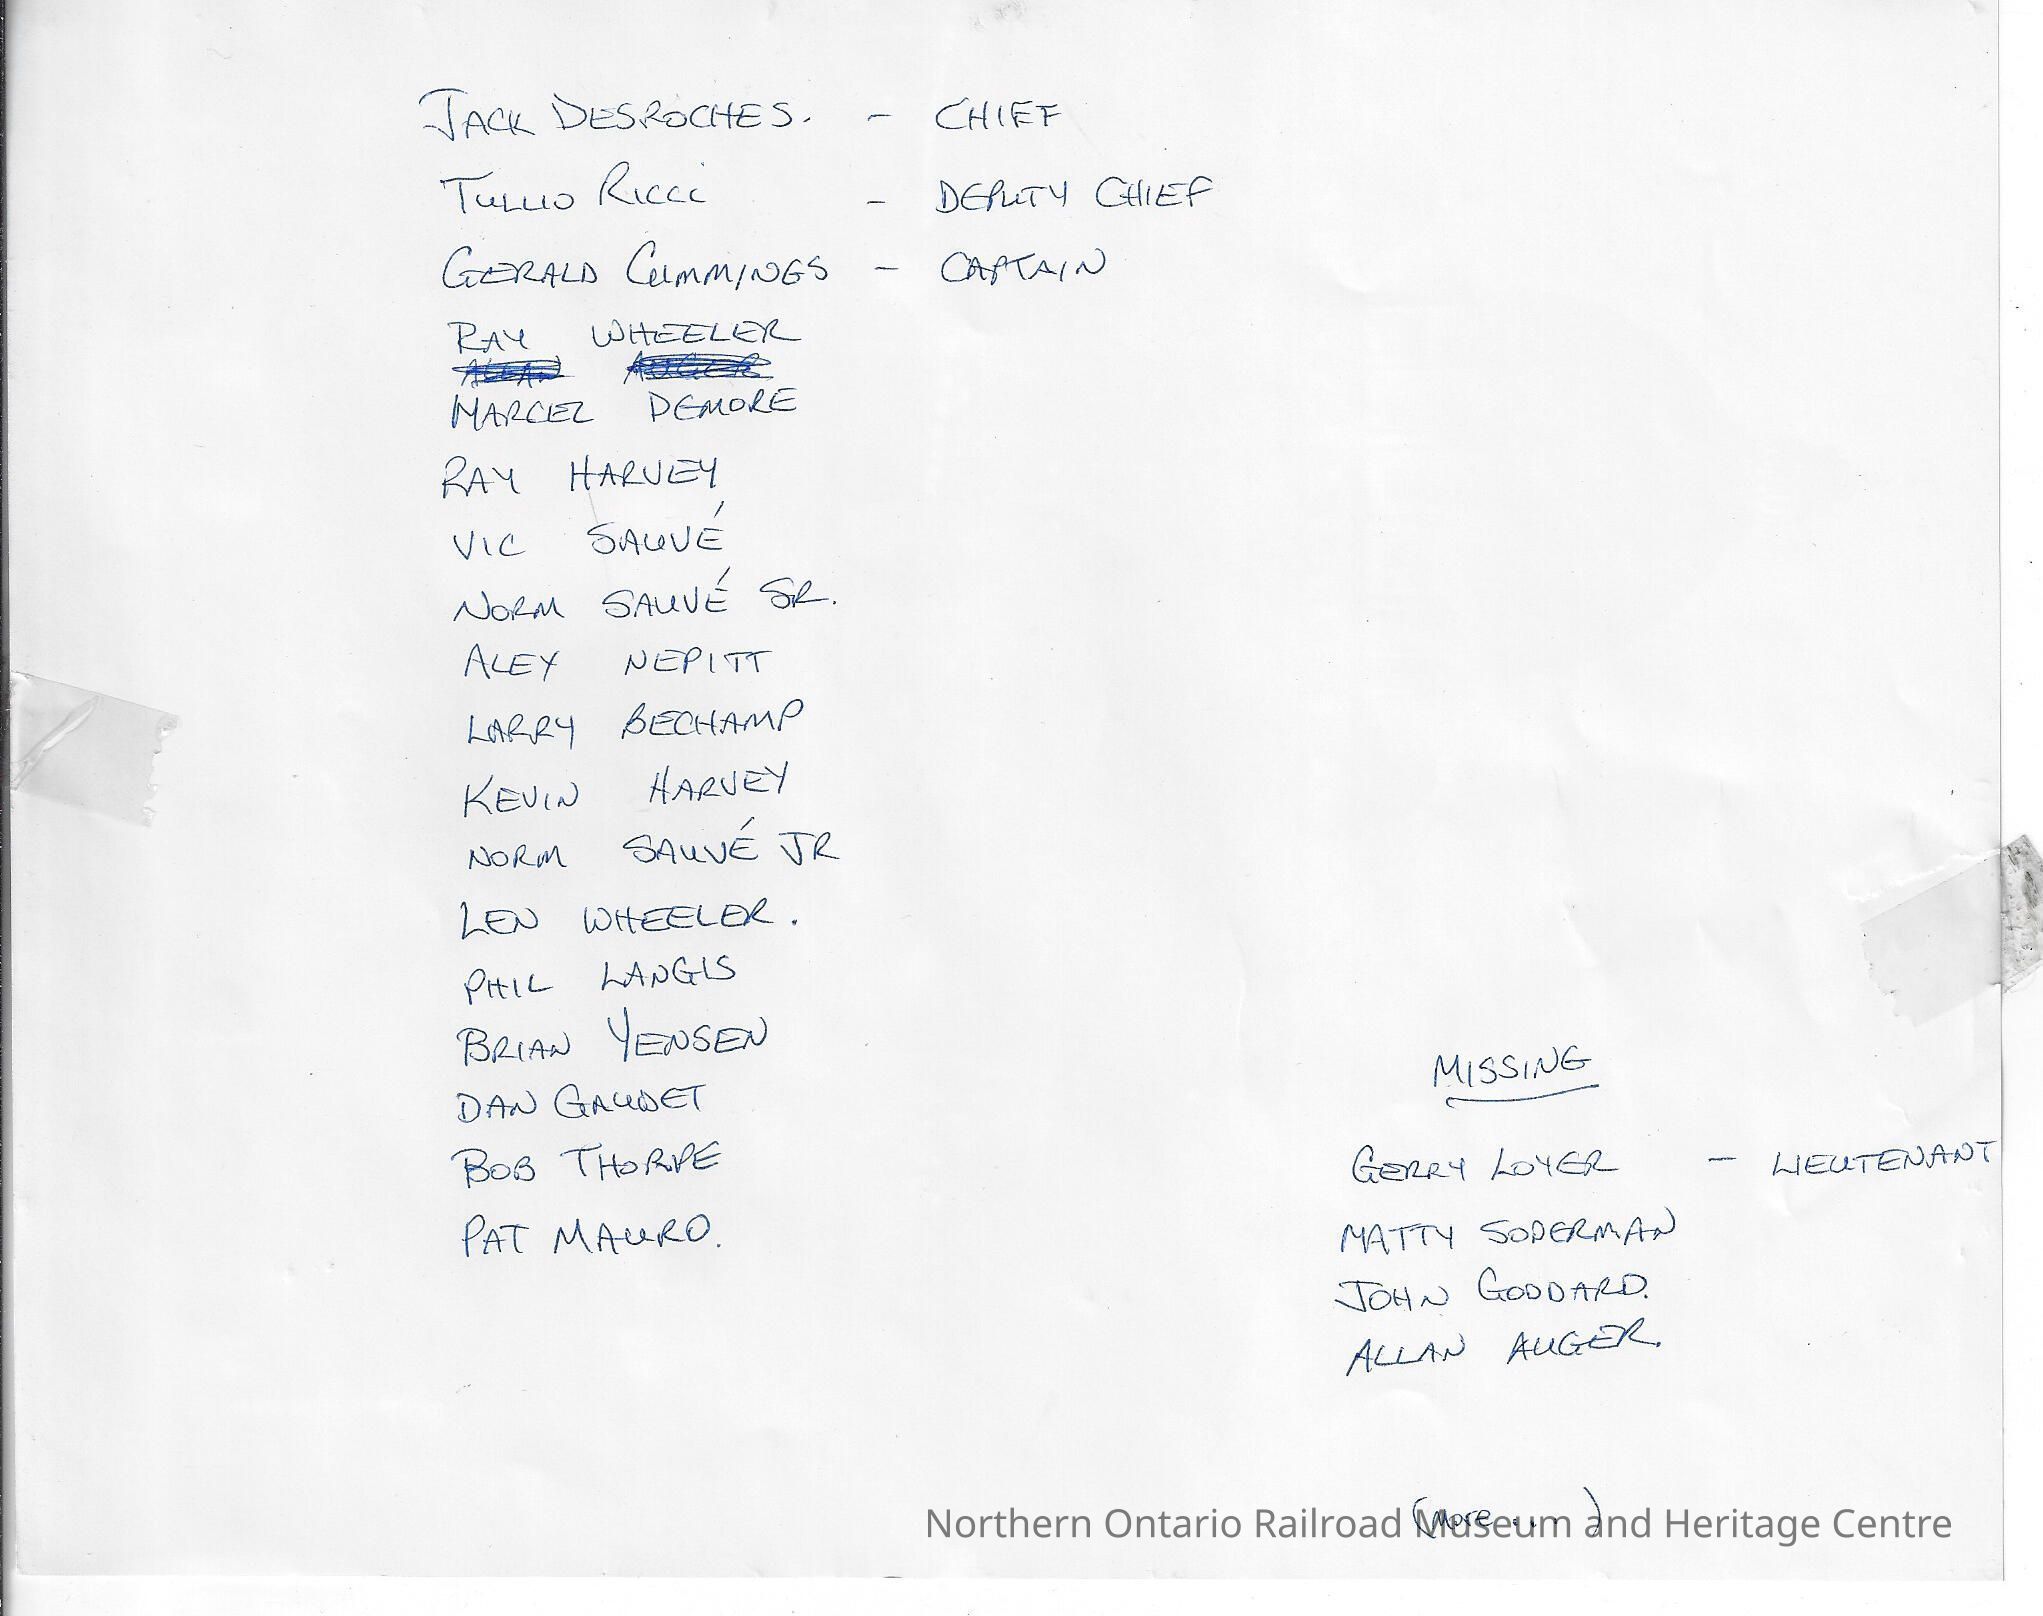 JACK DESROCHES. - CHIEF
TULLIO RICCI - DEPUTY CHIEF
GERALD CUMMINGS - CAPTAIN
RAY WHEELER
ALLAN AUGER
MARCEL DEMORE
RAY HARVEY
VIC SAUVÉ
NORM SAUVÉ SR.
ALEX NEPITT
LARRY BECHAMP
KEVIN HARVEY
NORM SAUVÉ JR
LEN WHEELER.
PHIL LANGIS
BRIAN YENSEN
DAN GAUDET
BOB THORPE
PAT MAURO.
MISSING
GERRY LOYER - LIEUTENANT
MATTY SODERMAN
JOHN GODDARD.
ALLAN AUGER.
(More ... )
Northern Ontario Railroad Museum and Heritage Centre